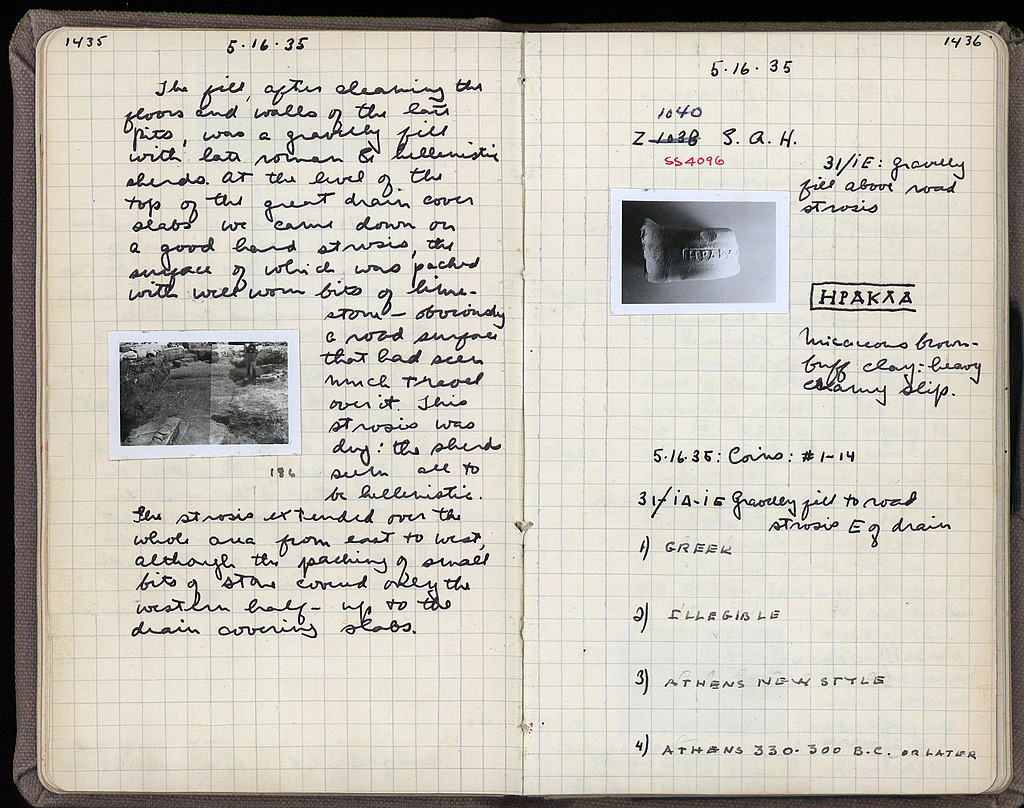 1435
5·16·35
The fill, after cleaning the
floors and walls of the late
pits, was a gravelly fill
with late roman & hellenistic
sherds. At the level of the
top of the great drain cover
slabs we came down on
a good hard strosis, the
surface of which was packed
with well worn bits of lime-
stone – obviously
a road surface
that had seen
much travel
over it. This
strosis was
dug: the sherds
seem all to
be hellenistic.
186
The strosis extended over the
whole area from east to west,
although the packing of small
bits of stone covered only the
western half – up to the
drain covering slabs.
1436
5·16·35
1040
Z 1038 S. A. H.
SS4096
31/ΙΕ: gravelly
fill above road
strosis
ΗΡΑΚΛΑ
ΗΡΑΚΛΑ
Micaceous brown-
buff clay: heavy
creamy slip.
5·16·35: Coins: #1-14
31/ΙΔ-ΙΕ Gravelly fill to road
strosis E of drain
1) GREEK
2) ILLEGIBLE
3) ATHENS NEW STYLE
4) ATHENS 330-300 B.C. OR LATER